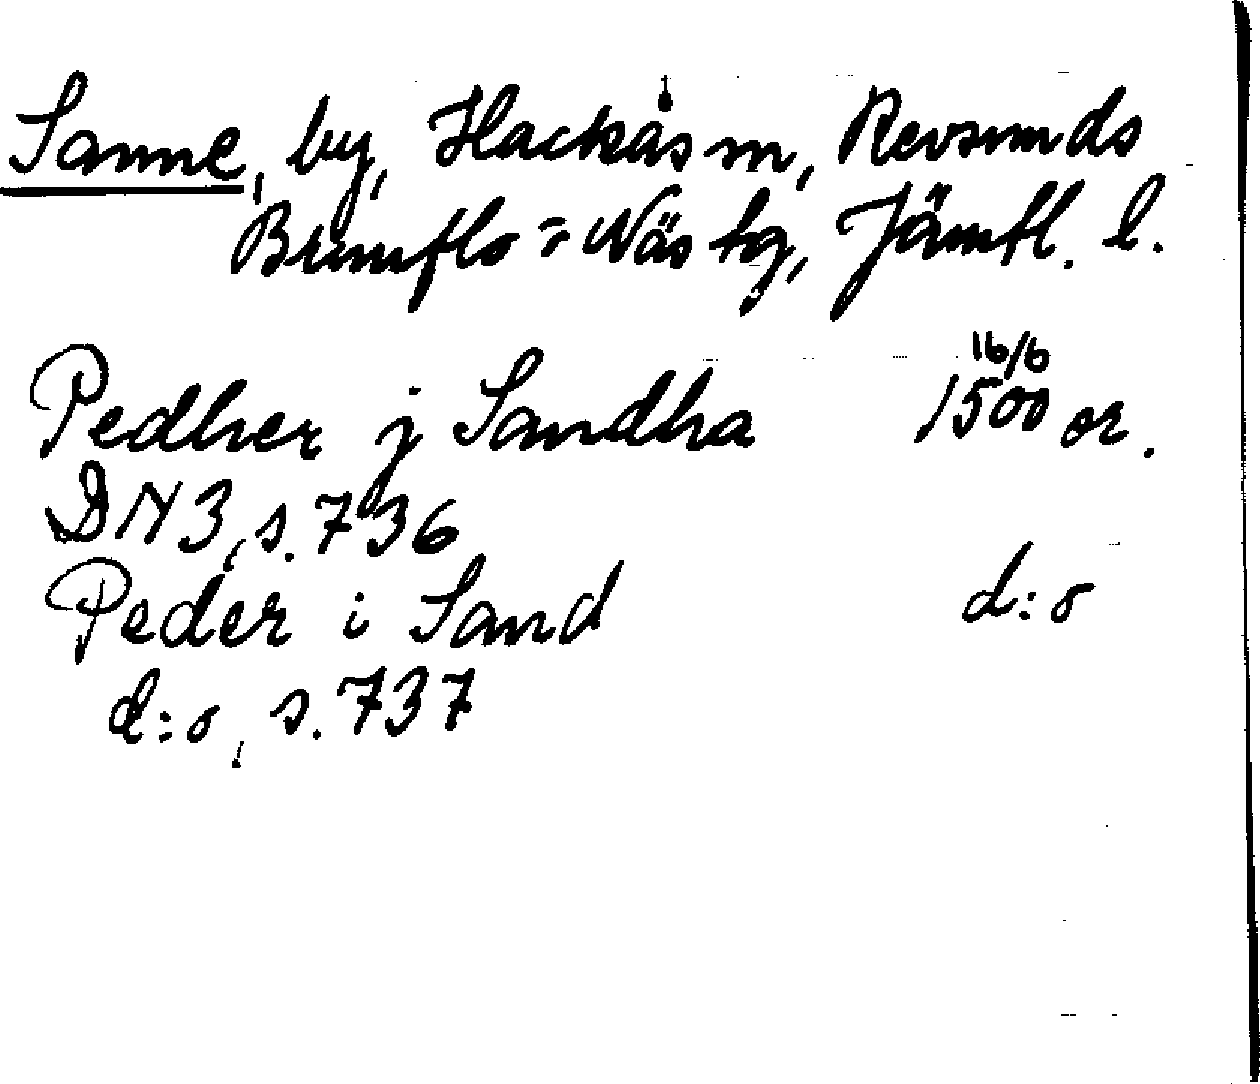 Sanne, by, Hackås sn, Revsunds
Brunflo = Näs tg, Jämtl. l.
Pedher j Sandha 16/6 1500 or.
DN 3, s. 736
Peder i Sand d:o
d:o, s. 737